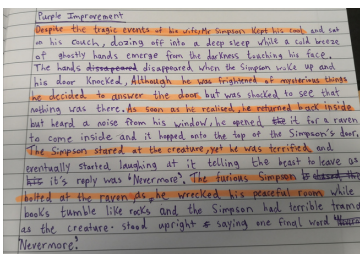 Purple Improvement
Despite the tragic events of his wife, Mr Simpson kept his cool and sat
on his couch, dozing off into a deep sleep while a cold breeze
of ghostly hands emerge from the darkness touching his face.
The hands disappeared disappeared when the Simpson woke up and
his door knocked, Although he was frightened of mysterious things
he decided to answer the door, but was shocked to see that
nothing was there. As soon as he realised, he returned back inside
but heard a noise from his window, he opened the it for a raven
to come inside and it hopped onto the top of the Simpson's door.
The Simpson stared at the creature, yet he was terrified and
eventually started laughing at it telling the beast to leave as
his it's reply was "Nevermore". The furious Simpson
bolted at the raven as he wrecked his peaceful room while
books tumble like rocks and the Simpson had terrible
as the creature stood upright saying one final word
"Nevermore".